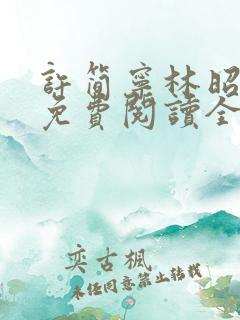 許簡寧林昭
免費閱讀全
奕古楓
未經同意禁止轉載